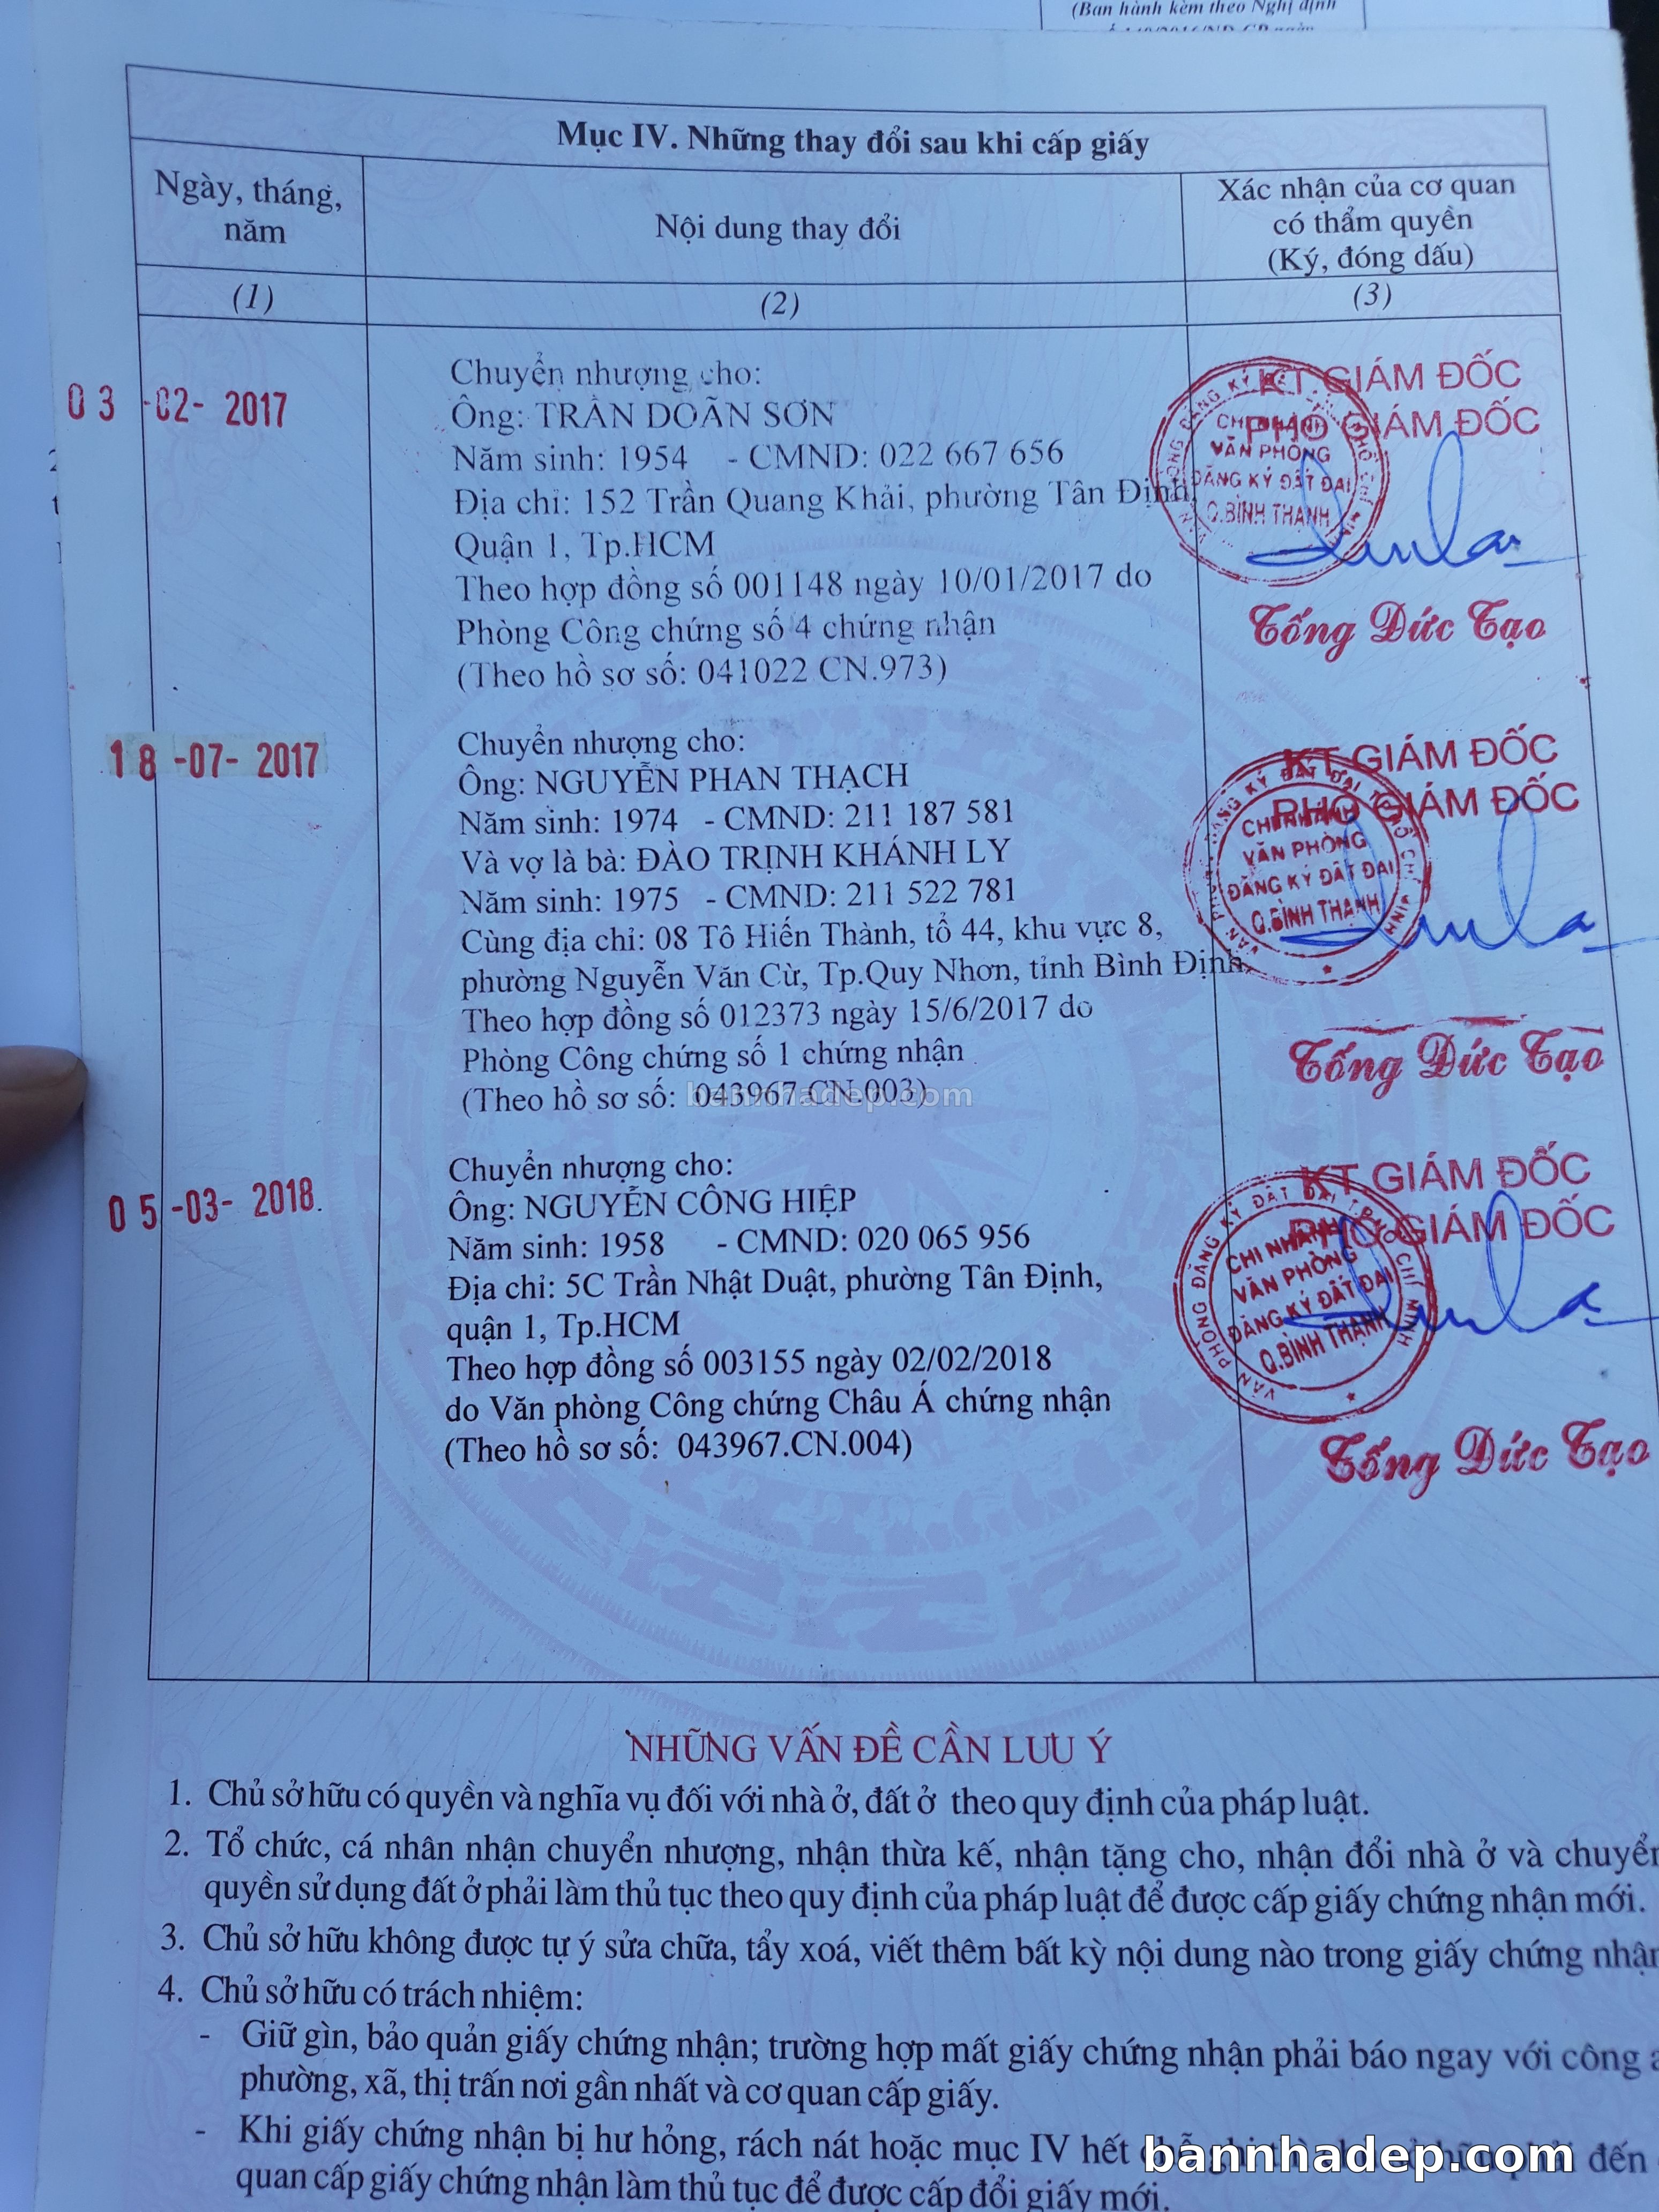 (Ban hành kèm theo Nghị định
Mục IV. Những thay đổi sau khi cấp giấy
Ngày, tháng,
năm
Nội dung thay đổi
Xác nhận của cơ quan
có thẩm quyền
(Ký, đóng dấu)
(1)
(2)
(3)
03-02-2017
Chuyển nhượng cho:
Ông: TRẦN DOÃN SƠN
Năm sinh: 1954 - CMND: 022 667 656
Địa chỉ: 152 Trần Quang Khải, phường Tân Định,
Quận 1, Tp.HCM
Theo hợp đồng số 001148 ngày 10/01/2017 do
Phòng Công chứng số 4 chứng nhận
(Theo hồ sơ số: 041022 CN.973)
KT.GIÁM ĐỐC
PHÓ GIÁM ĐỐC
CHI NHÁNH
VĂN PHÒNG
ĐĂNG KÝ ĐẤT ĐAI
Q.BÌNH THẠNH
Tống Đức Tạo
18-07-2017
Chuyển nhượng cho:
Ông: NGUYỄN PHAN THẠCH
Năm sinh: 1974 - CMND: 211 187 581
Và vợ là bà: ĐÀO TRỊNH KHÁNH LY
Năm sinh: 1975 - CMND: 211 522 781
Cùng địa chỉ: 08 Tô Hiến Thành, tổ 44, khu vực 8,
phường Nguyễn Văn Cừ, Tp.Quy Nhơn, tỉnh Bình Định.
Theo hợp đồng số 012373 ngày 15/6/2017 do
Phòng Công chứng số 1 chứng nhận
(Theo hồ sơ số: 043967.CN.003)
bannhadep.com
KT.GIÁM ĐỐC
PHÓ GIÁM ĐỐC
CHI NHÁNH
VĂN PHÒNG
ĐĂNG KÝ ĐẤT ĐAI
Q.BÌNH THẠNH
Tống Đức Tạo
05-03-2018.
Chuyển nhượng cho:
Ông: NGUYỄN CÔNG HIỆP
Năm sinh: 1958 - CMND: 020 065 956
Địa chỉ: 5C Trần Nhật Duật, phường Tân Định,
quận 1, Tp.HCM
Theo hợp đồng số 003155 ngày 02/02/2018
do Văn phòng Công chứng Châu Á chứng nhận
(Theo hồ sơ số: 043967.CN.004)
KT GIÁM ĐỐC
PHÓ GIÁM ĐỐC
CHI NHÁNH
VĂN PHÒNG
ĐĂNG KÝ ĐẤT ĐAI
Q.BÌNH THẠNH
Tống Đức Tạo
NHỮNG VẤN ĐỀ CẦN LƯU Ý
1. Chủ sở hữu có quyền và nghĩa vụ đối với nhà ở, đất ở theo quy định của pháp luật.
2. Tổ chức, cá nhân nhận chuyển nhượng, nhận thừa kế, nhận tặng cho, nhận đổi nhà ở và chuyển
quyền sử dụng đất ở phải làm thủ tục theo quy định của pháp luật để được cấp giấy chứng nhận mới.
3. Chủ sở hữu không được tự ý sửa chữa, tẩy xoá, viết thêm bất kỳ nội dung nào trong giấy chứng nhận
4. Chủ sở hữu có trách nhiệm:
- Giữ gìn, bảo quản giấy chứng nhận; trường hợp mất giấy chứng nhận phải báo ngay với công a
phường, xã, thị trấn nơi gần nhất và cơ quan cấp giấy.
- Khi giấy chứng nhận bị hư hỏng, rách nát hoặc mục IV hết đến
bannhadep.com
quan cấp giấy chứng nhận làm thủ tục để được cấp đổi giấy mới.